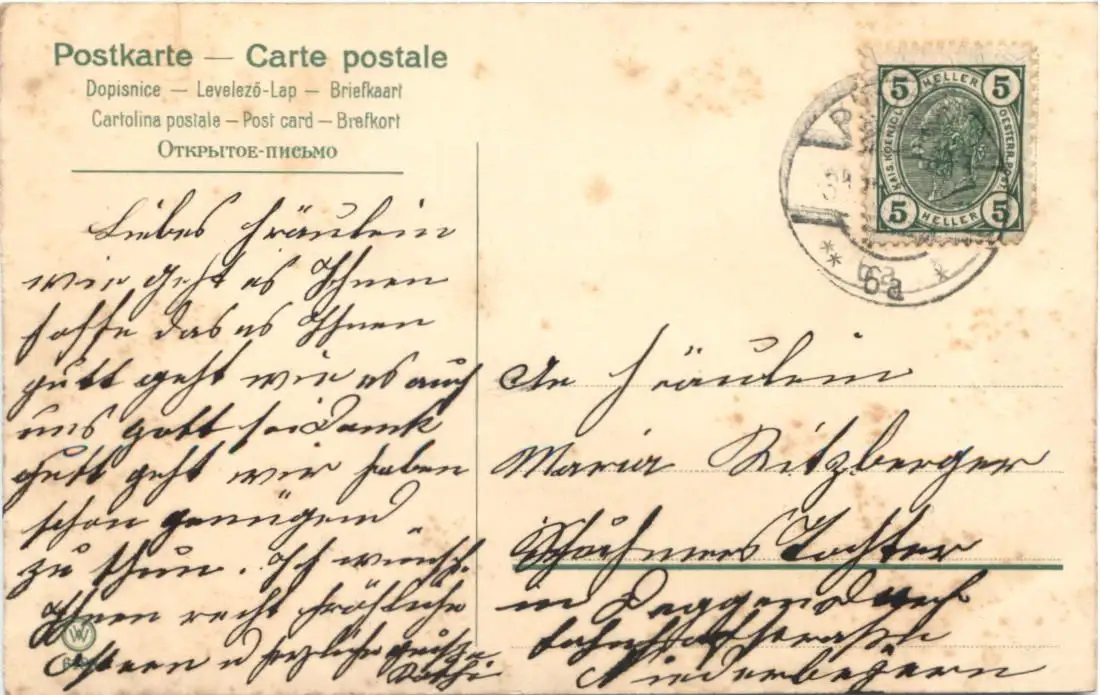 Postkarte — Carte postale
Dopisnice — Levelező-Lap — Briefkaart
Cartolina postale — Post card — Brefkort
Открытое-письмо
Liebes Fräulein
wie geht es Ihnen
hoffe das es Ihnen
gutt geht wie es auch
uns gott sei Dank
gutt geht wir haben
schon genügend
zu thun. Ich wünsch.
Ihnen recht fröhliche
Ostern u herzliche grüße
Kathi
5 HELLER 5
KAIS. KOENIGL. OESTERR. POST
5 HELLER 5
6a
An Fräulein
Maria Ritzberger
Tochter
in Deggendorf
Bahnhofstrasse
Niederbayern
W